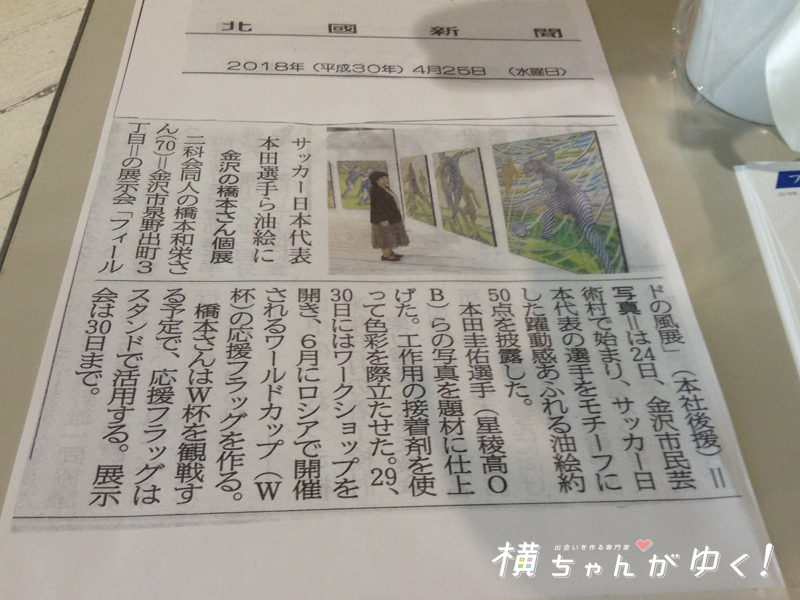 北國新聞
2018年(平成30年)4月25日　(水曜日)
サッカー日本代表
本田選手ら油絵に
金沢の橋本さん個展
二科会同人の橋本和栄さ
ん(70)＝金沢市泉野出町3
丁目＝の展示会「フィール
ドの風展」(本社後援)＝
写真＝は24日、金沢市民芸
術村で始まり、サッカー日
本代表の選手をモチーフに
した躍動感あふれる油絵約
50点を披露した。
本田圭佑選手(星稜高O
B)らの写真を題材に仕上
げた。工作用の接着剤を使
って色彩を際立たせた。29、
30日にはワークショップを
開き、6月にロシアで開催
されるワールドカップ(W
杯)の応援フラッグを作る。
橋本さんはW杯を観戦す
る予定で、応援フラッグは
スタンドで活用する。展示
会は30日まで。
出会いを作る専門家
横ちゃんがゆく!